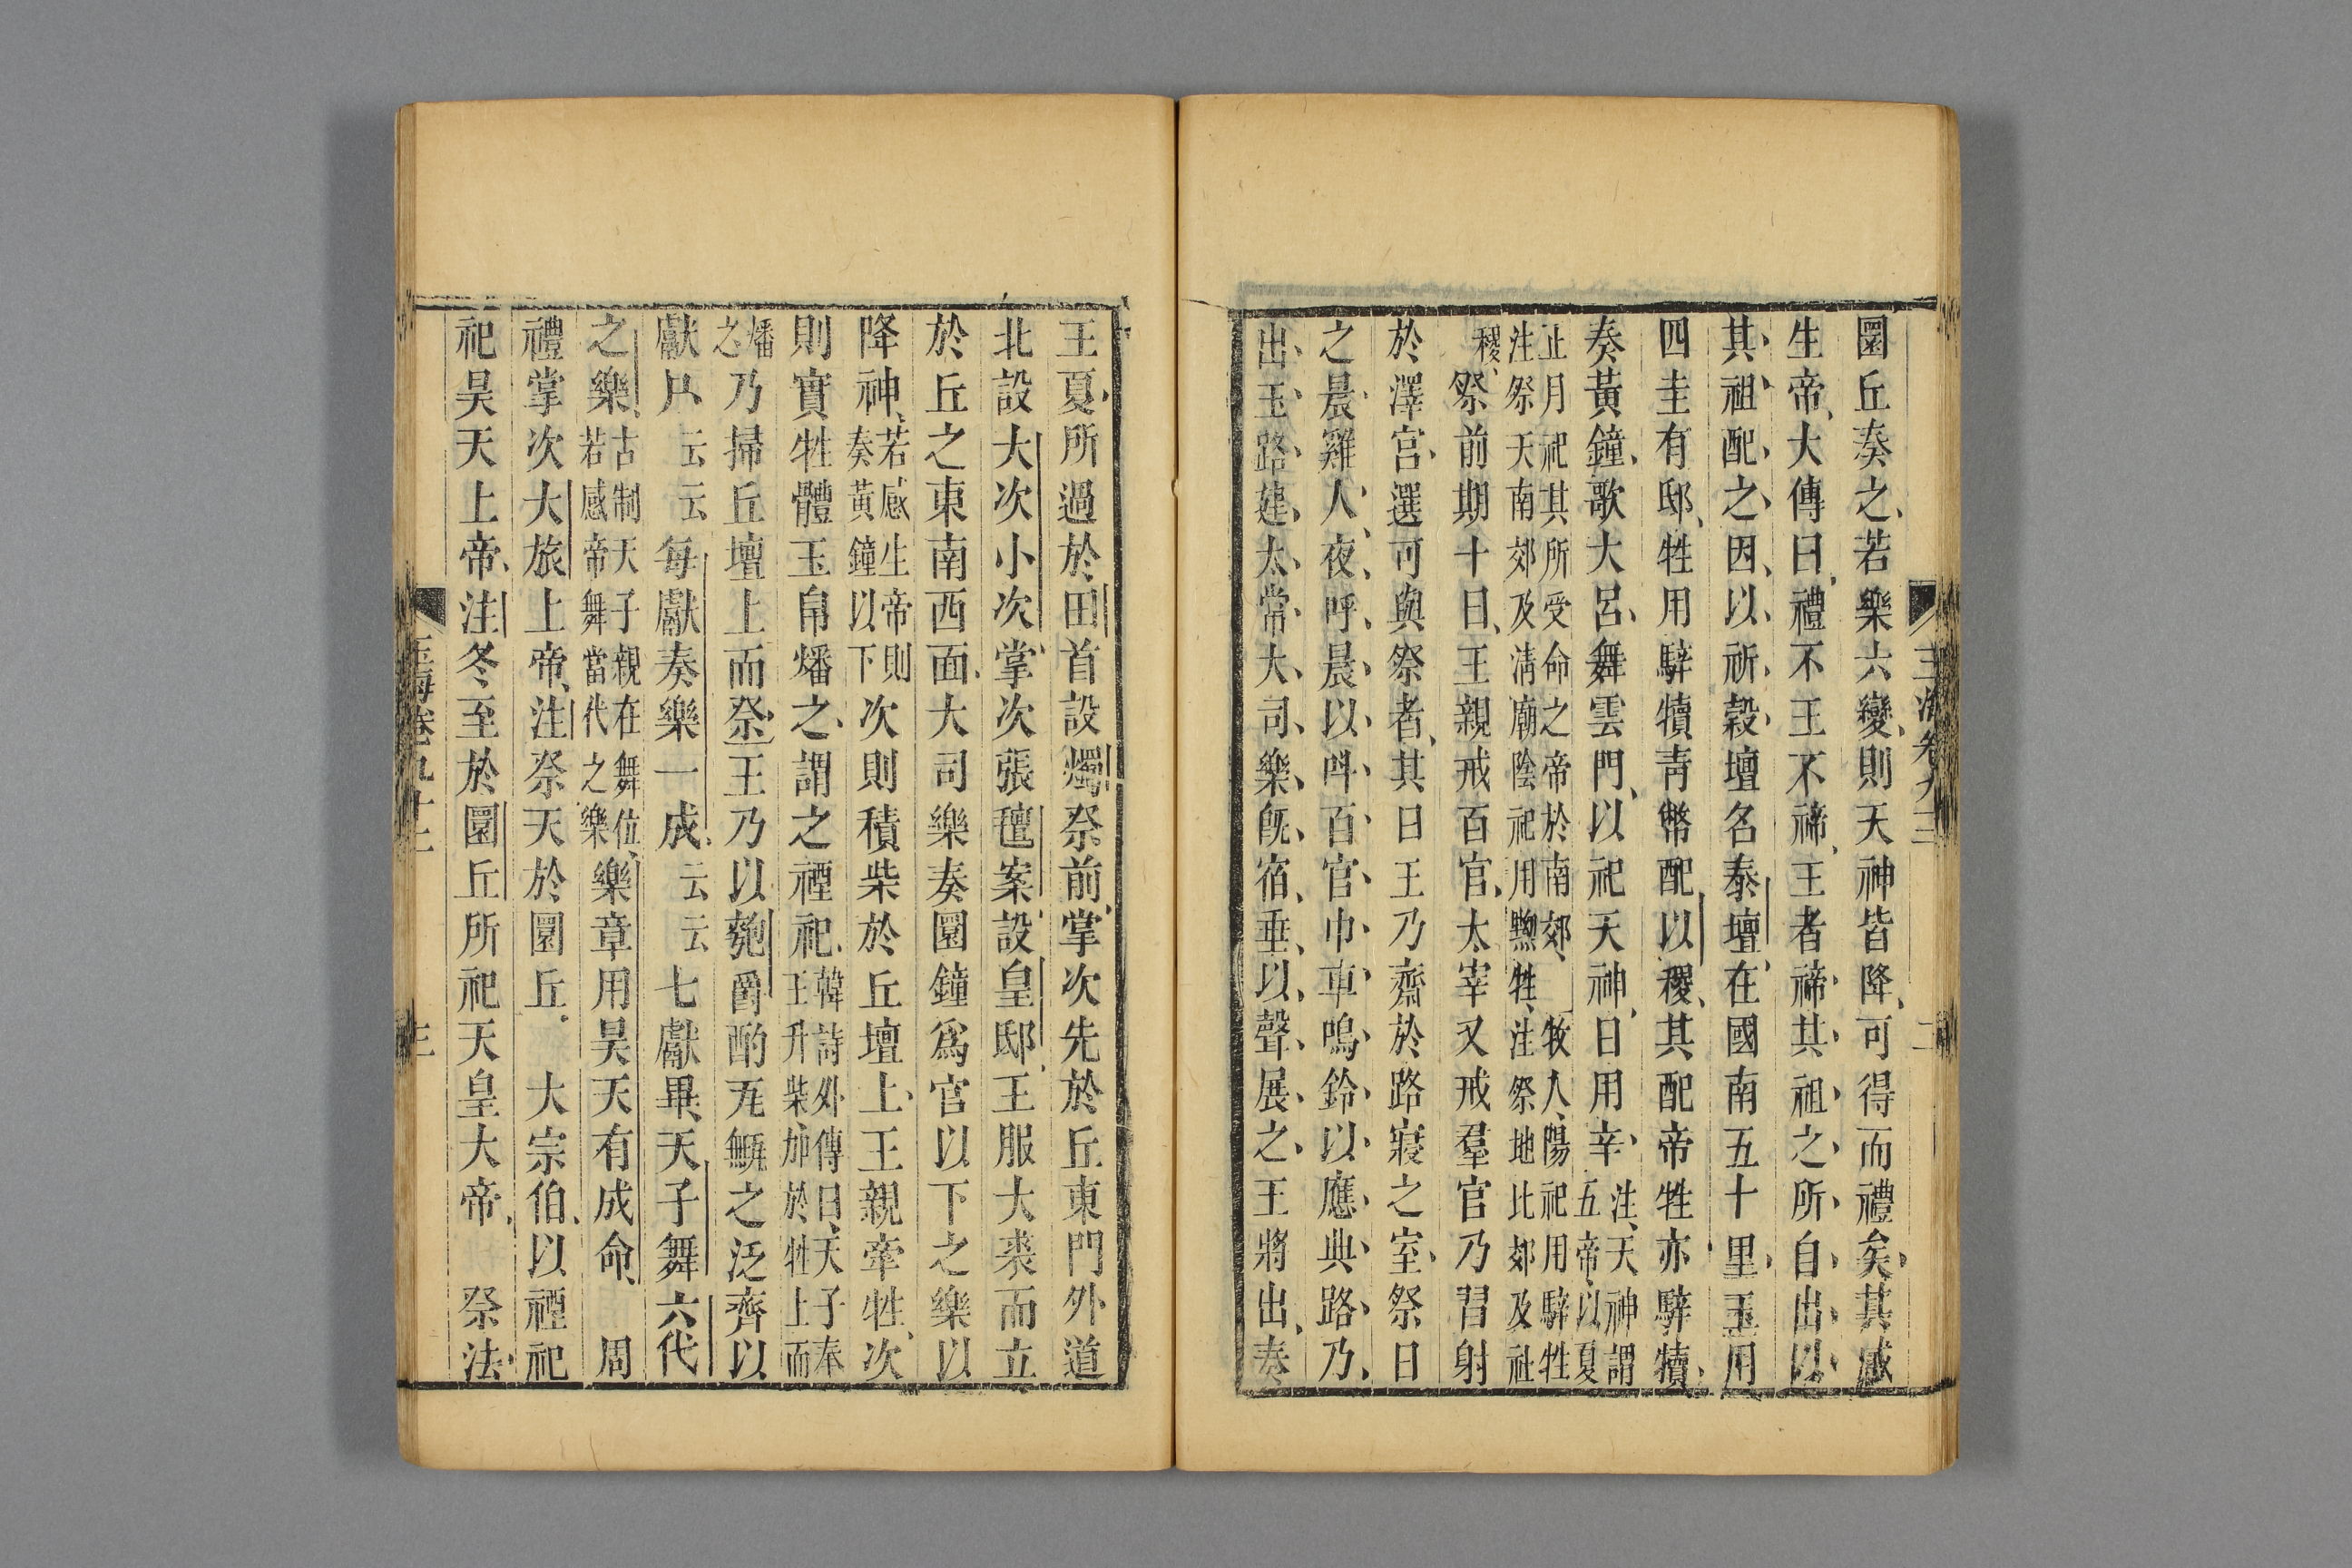 圜丘奏之若樂六變則天神皆降可得而禮矣其感
生帝大傳曰禮不王不禘王者禘其祖之所自出以
其祖配之因以祈穀壇名泰壇在國南五十里玉用
四圭有邸牲用騂犢青幣配以稷其配帝牲亦騂犢
奏黃鐘歌大呂舞雲門以祀天神日用辛注天神謂
五帝以夏
正月祀其所受命之帝於南郊 牧人陽祀用騂牲
注祭天南郊及淸廟陰祀用黝牲注祭地北郊及社
稷祭前期十日王親戒百官太宰又戒羣官乃習射
於澤宮選可與祭者其日王乃齋於路寢之室祭日
之晨雞人夜呼晨以嘂百官巾車鳴鈴以應典路乃
出玉路建太常大司樂既宿垂以聲展之王將出奏
王夏所過於田首設燭祭前掌次先於丘東門外道
北設大次小次掌次張氊案設皇邸王服大裘而立
於丘之東南西面大司樂奏圜鐘爲宮以下之樂以
降神若感生帝則
奏黃鐘以下次則積柴於丘壇上王親牽牲次
則實牲體玉帛燔之謂之禋祀韓詩外傳曰天子奉
玉升柴加於牲上而
燔
之乃掃丘壇上而祭王乃以匏爵酌瓦甒之泛齊以
獻尸云云每獻奏樂一成云云七獻畢天子舞六代
之樂古制天子親在舞位
若感帝舞當代之樂樂章用昊天有成命 周
禮掌次大旅上帝注祭天於圜丘 大宗伯以禋祀
祀昊天上帝注冬至於圜丘所祀天皇大帝 祭法
玉海卷九十三
三